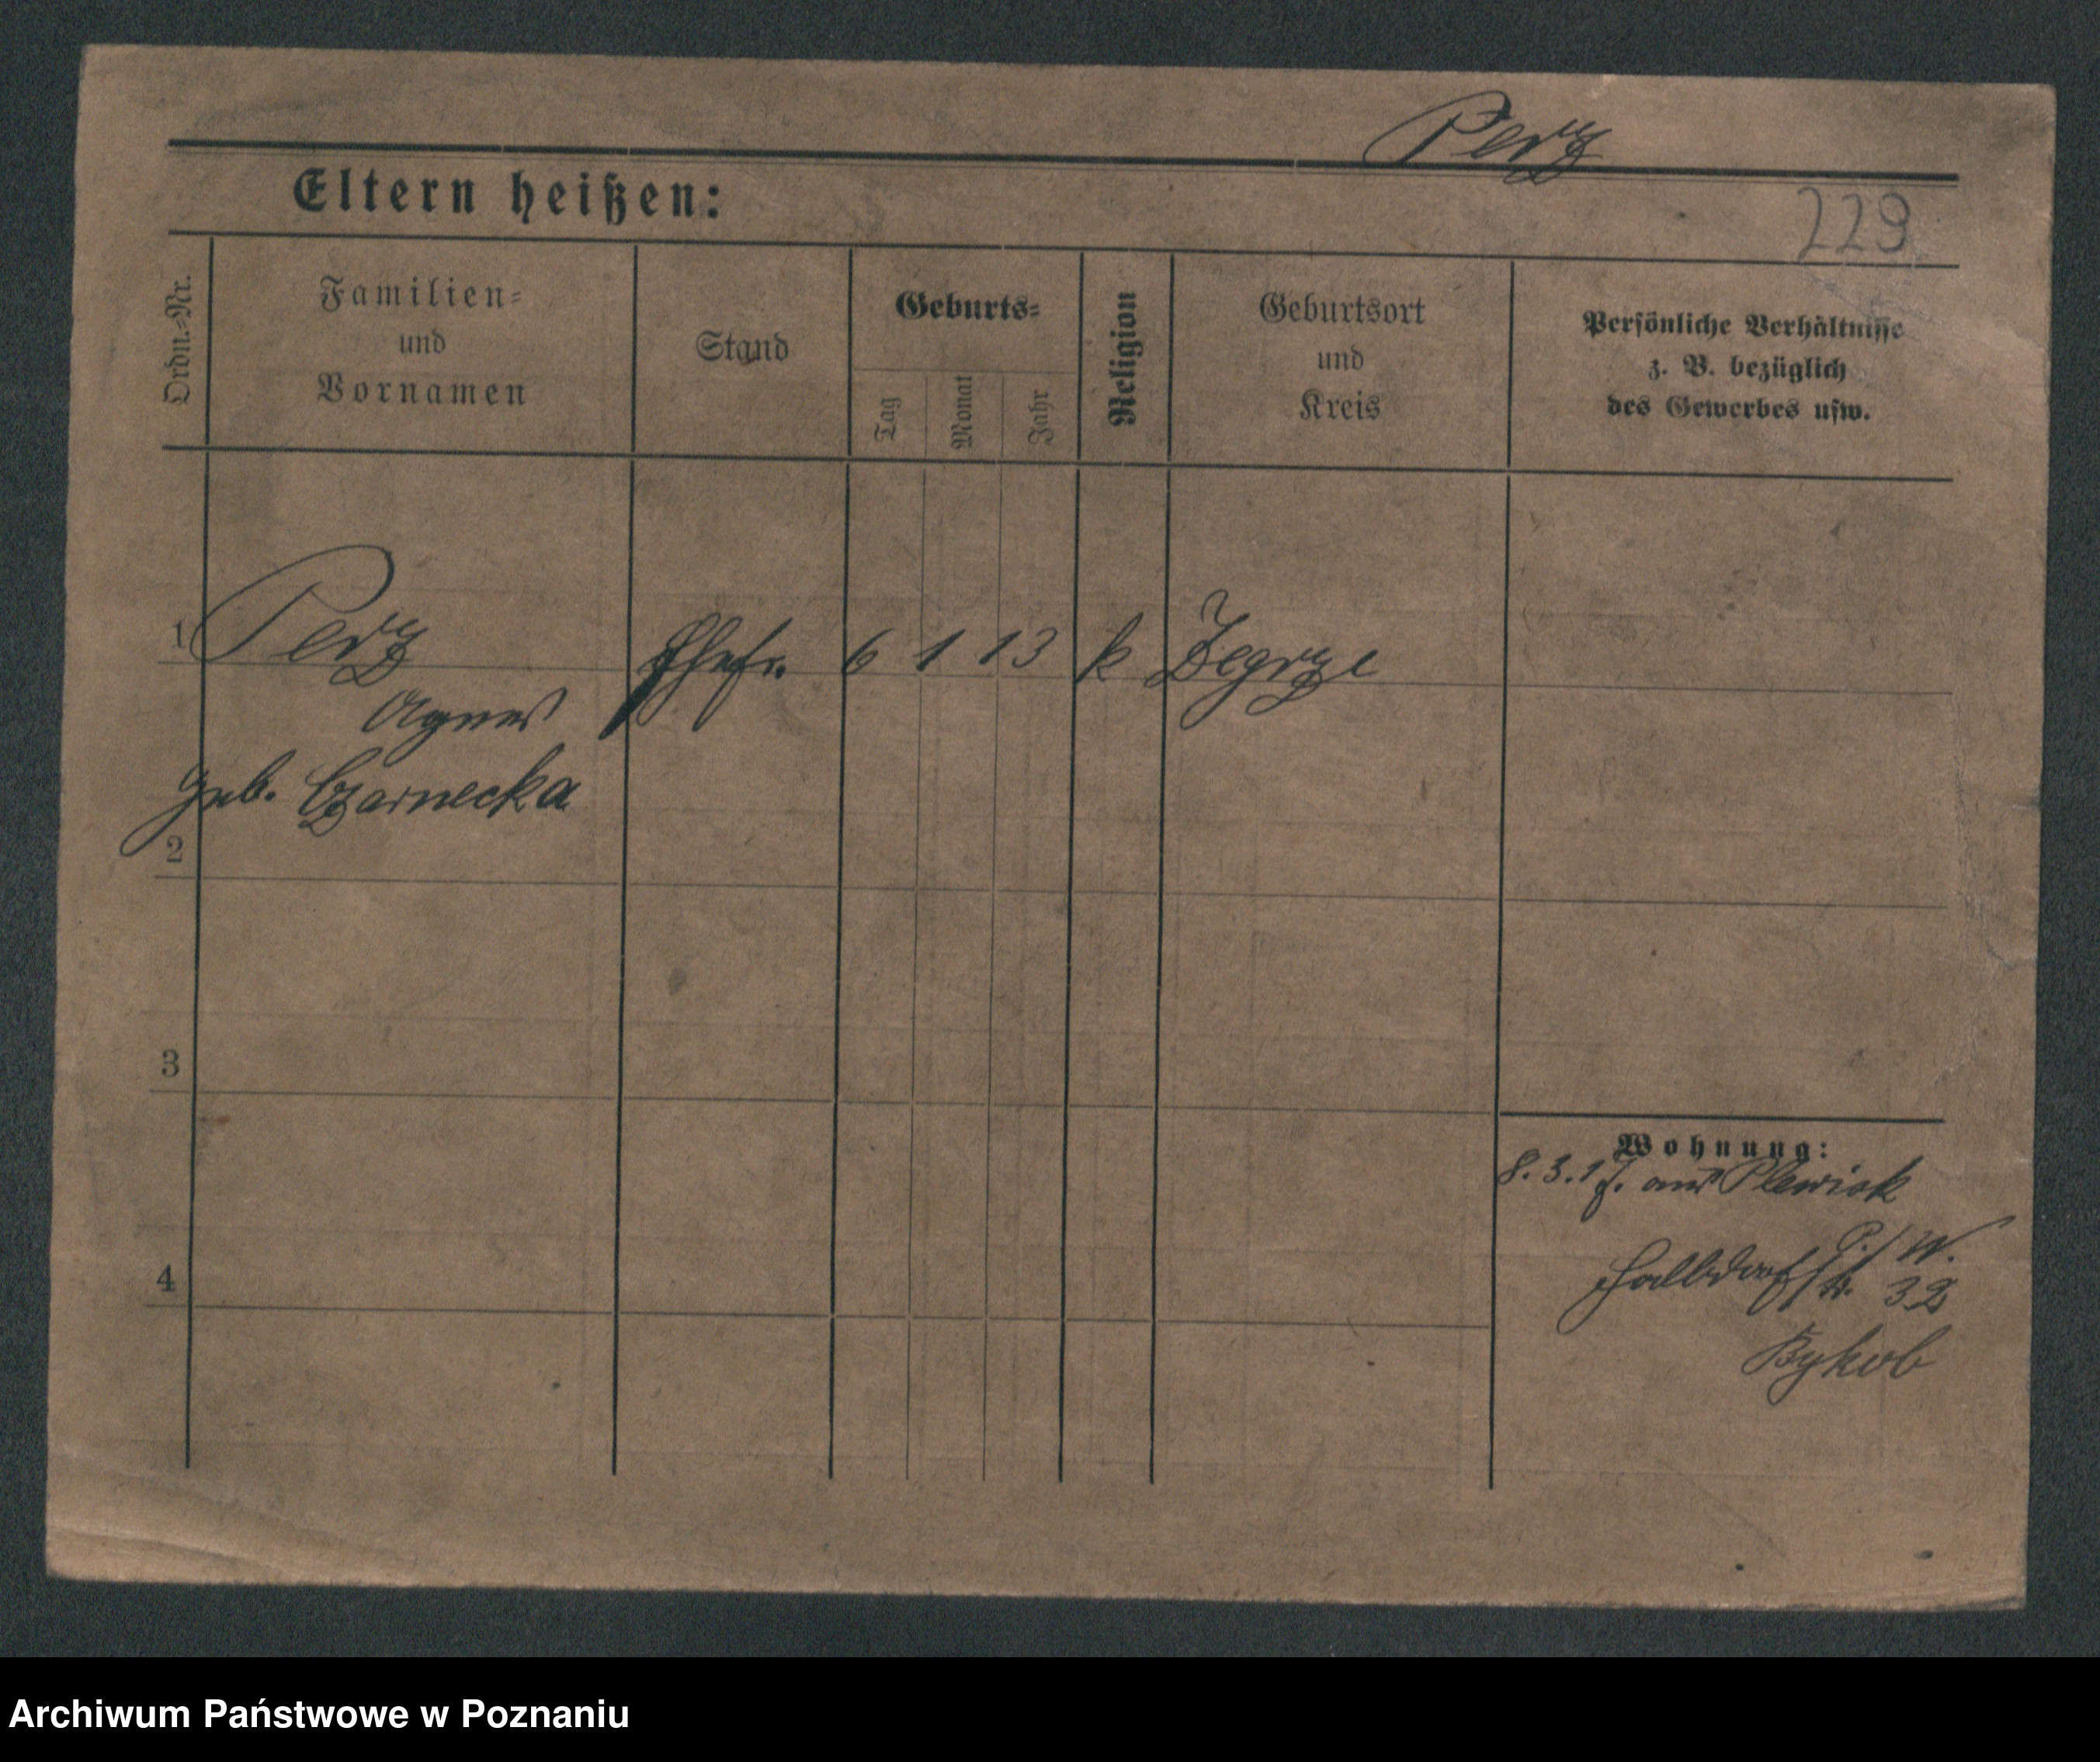 Perz
Eltern heißen:
229
Ordn.-Nr.
Familien-
und
Vornamen
Stand
Geburts-
Tag
Monat
Jahr
Religion
Geburtsort
und
Kreis
Persönliche Verhältnisse
z. B. bezüglich
des Gewerbes usw.
1 Perz Ehefr. 6 1 13 k Zegrze
Agnes
geb. Czarnecka
2
3
4
Wohnung:
8.3.17. aus Plewisk
P./W.
Halbdorfstr. 32
Archiwum Państwowe w Poznaniu